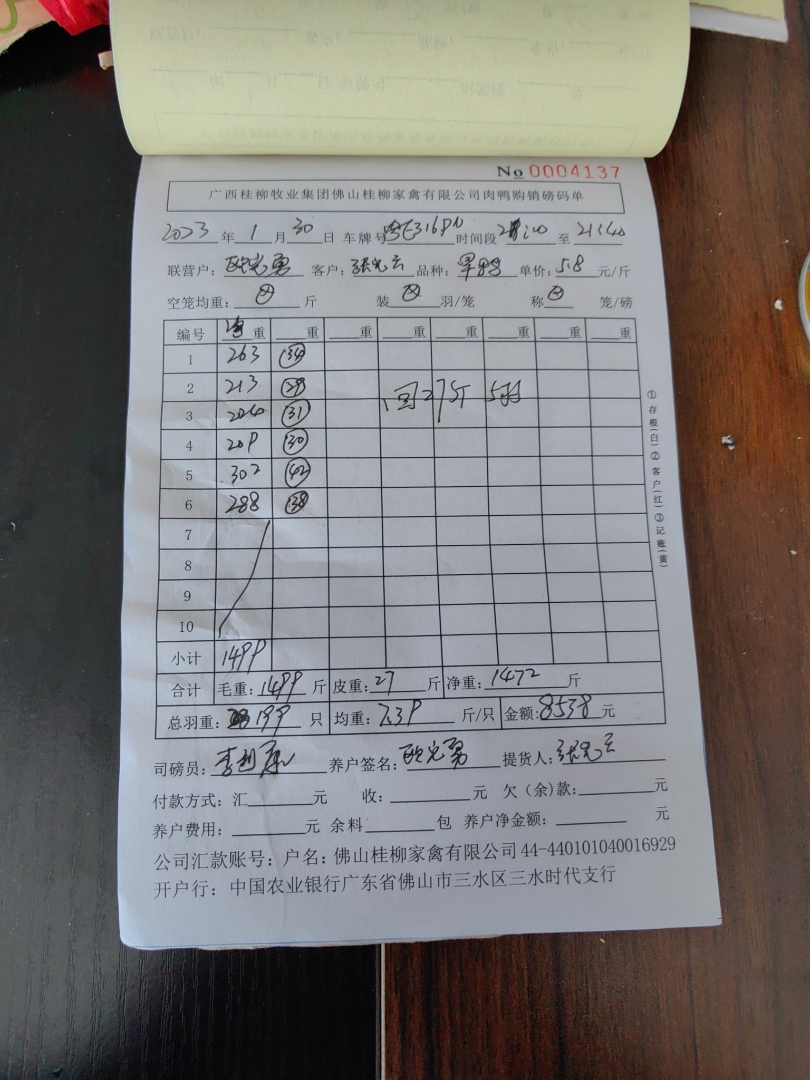 No 0004137
广西桂柳牧业集团佛山桂柳家禽有限公司肉鸭购销磅码单
2023年1月30日 车牌号 时间段 至21:40
联营户: 客户: 品种: 单价:5.8元/斤
空笼均重: 斤 装 羽/笼 称 笼/磅
编号 重 重 重 重 重 重 重 重
1 263 34
2 213
3 204 31
4 209 30
5 302 42
6 288 38
回27斤 5羽
7
8
9
10
小计 1499
合计 毛重:1499斤 皮重:27斤 净重:1472斤
总羽重:199只 均重:7.39斤/只 金额:8538元
司磅员: 养户签名: 提货人:
付款方式:汇 元 收: 元 欠(余)款: 元
养户费用: 元 余料 包 养户净金额: 元
公司汇款账号:户名:佛山桂柳家禽有限公司44-440101040016929
开户行:中国农业银行广东省佛山市三水区三水时代支行
①存根(白)②客户(红)③记账(黄)